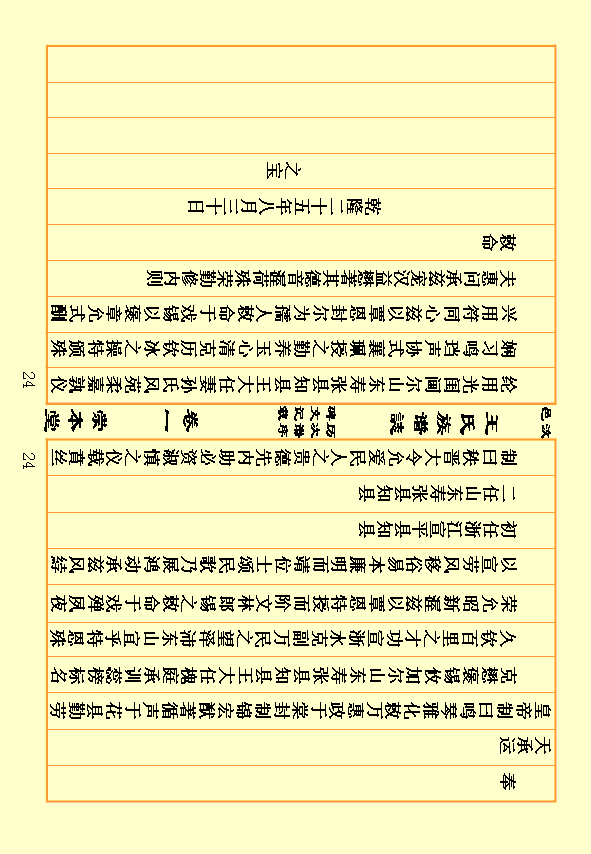 奉
天承运
皇帝制曰鸣琴雅化敷万惠政于棠封制锦宏猷著循声于花县勤劳
克懋褒锡攸加尔山东寿张县知县王大任槐庭承训蕊榜标名
久钦百里之才功宣浙水克副万民之望之泽沛东山宜乎特恩殊
荣允昭新渥兹以覃恩特授而阶文林郎锡之敕命于戏殚夙夜
以宣劳风移俗易本廉明而靖位士颂民歌乃展鸿动承兹风綍
初任浙江宣平县知县
二任山东寿张县知县
制曰秩晋大令允爱民人之贵德先内助必资淑慎仪之载贲丝
24
王氏族谱誌
卷一
崇本堂
24
纶用光国阃尔山东寿张县知县王大任妻孙氏风苑柔嘉孰仪
娴习鸣珰声协式襄黼授之勤养之玉心清克历钦冰之操特颁殊
兴用符同心兹以覃恩封尔为孺人敕命于戏锡以褒章允式酬
夫惠问承兹宠汉益懋著其德音渥荷殊荣勤修内则
敕命
乾隆二十五年八月三十日
之宝